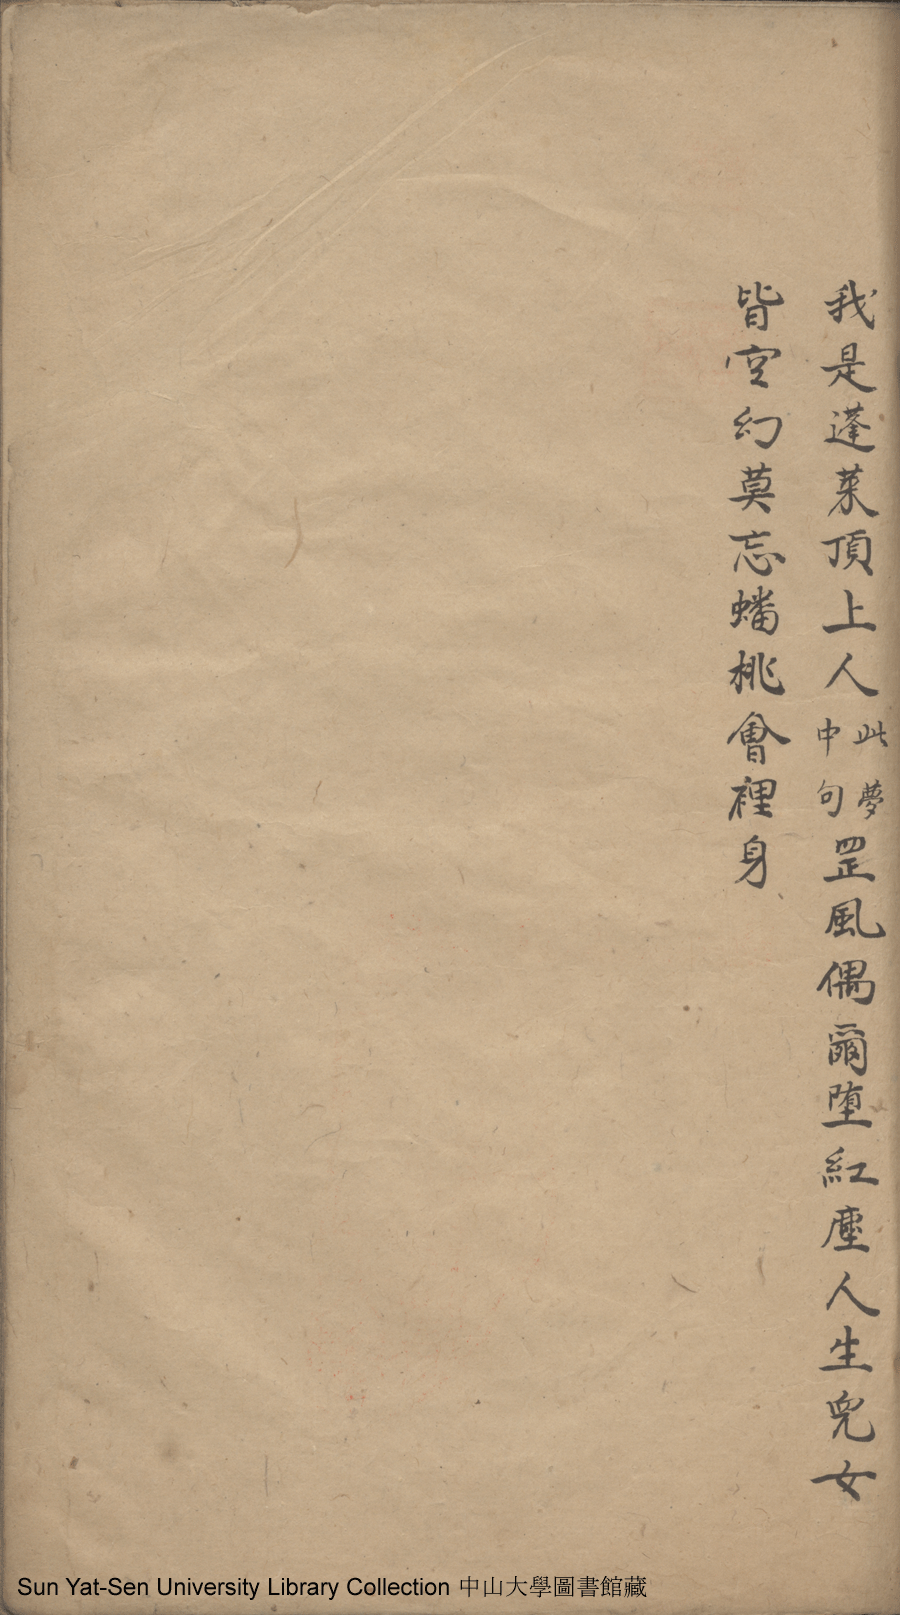 我是蓬萊頂上人此夢中句罡風偶爾堕紅塵人生兒女
皆空幻莫忘蟠桃會裡身
Sun Yat-Sen University Library Collection 中山大學圖書館藏